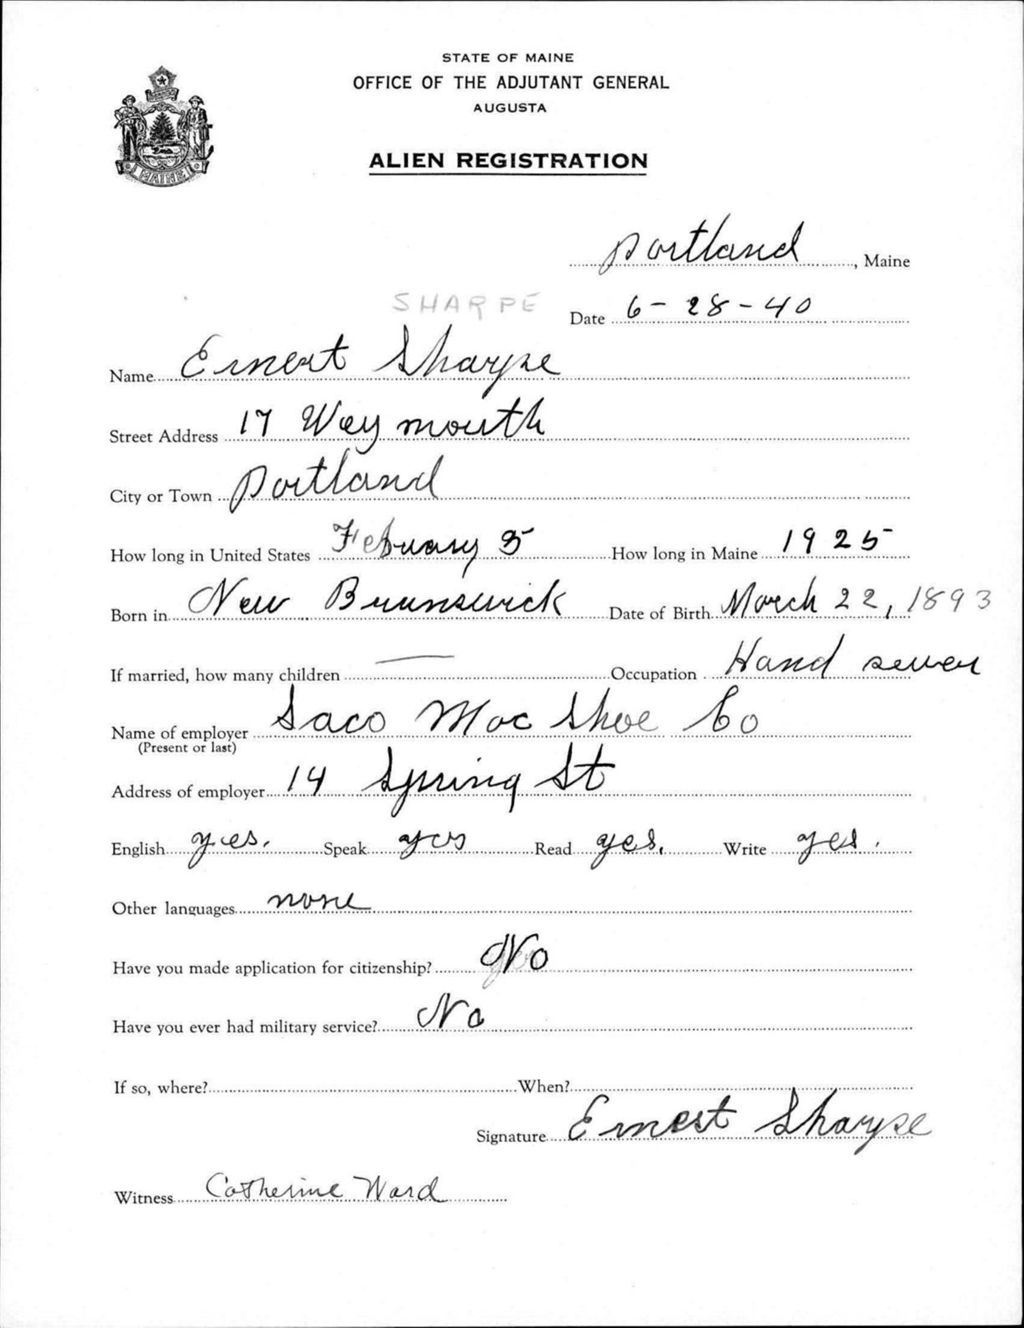 STATE OF MAINE
OFFICE OF THE ADJUTANT GENERAL
AUGUSTA
ALIEN REGISTRATION
Portland, Maine
SHARPE
Date 6-28-40
Name Ernest Sharpe
Street Address 17 Waymouth
City or Town Portland
How long in United States February 5 How long in Maine 1925
Born in New Brunswick Date of Birth March 22, 1893
If married, how many children — Occupation Hand sewer
Name of employer Saco Moc Shoe Co
(Present or last)
Address of employer 14 Spring St
English yes. Speak yes Read yes. Write yes.
Other languages none
Have you made application for citizenship? No
Have you ever had military service? No
If so, where? When?
Signature Ernest Sharpe
Witness Catherine Ward
MAINE